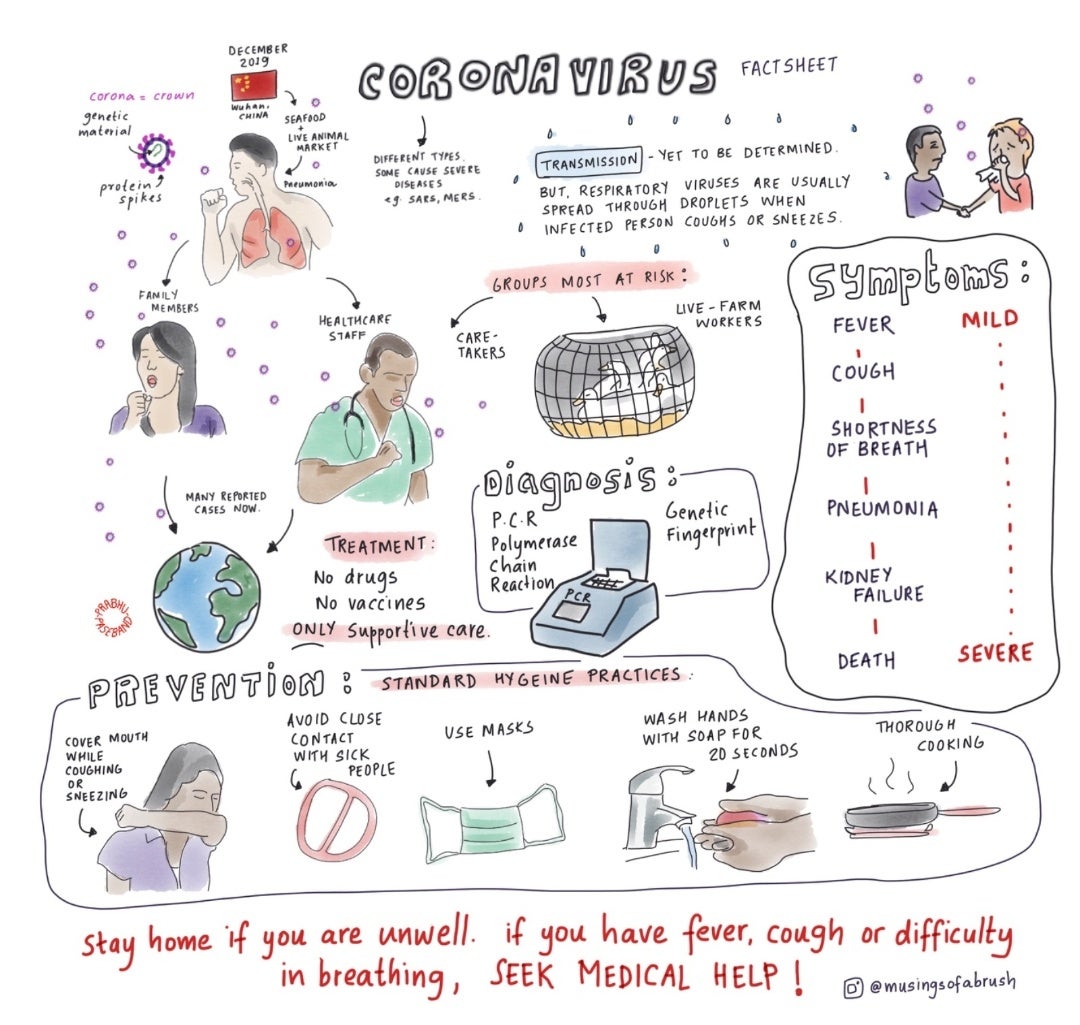 CORONAVIRUS FACTSHEET
DECEMBER
2019
Wuhan,
CHINA
SEAFOOD
+
LIVE ANIMAL
MARKET
Pneumonia
corona = crown
genetic
material
protein
spikes
DIFFERENT TYPES.
SOME CAUSE SEVERE
DISEASES
eg. SARS, MERS.
TRANSMISSION - YET TO BE DETERMINED.
BUT, RESPIRATORY VIRUSES ARE USUALLY
SPREAD THROUGH DROPLETS WHEN
INFECTED PERSON COUGHS OR SNEEZES.
FAMILY
MEMBERS
HEALTHCARE
STAFF
GROUPS MOST AT RISK:
CARE-
TAKERS
LIVE-FARM
WORKERS
Symptoms:
FEVER MILD
COUGH
SHORTNESS
OF BREATH
PNEUMONIA
KIDNEY
FAILURE
DEATH SEVERE
MANY REPORTED
CASES NOW.
Diagnosis:
P.C.R
Polymerase
Chain
Reaction
Genetic
Fingerprint
PCR
TREATMENT:
No drugs
No vaccines
ONLY Supportive care.
PRABHU
PASEBAND
PREVENTION: STANDARD HYGEINE PRACTICES:
COVER MOUTH
WHILE
COUGHING
OR
SNEEZING
AVOID CLOSE
CONTACT
WITH SICK
PEOPLE
USE MASKS
WASH HANDS
WITH SOAP FOR
20 SECONDS
THOROUGH
COOKING
stay home if you are unwell. if you have fever, cough or difficulty
in breathing, SEEK MEDICAL HELP!
@musingsofabrush